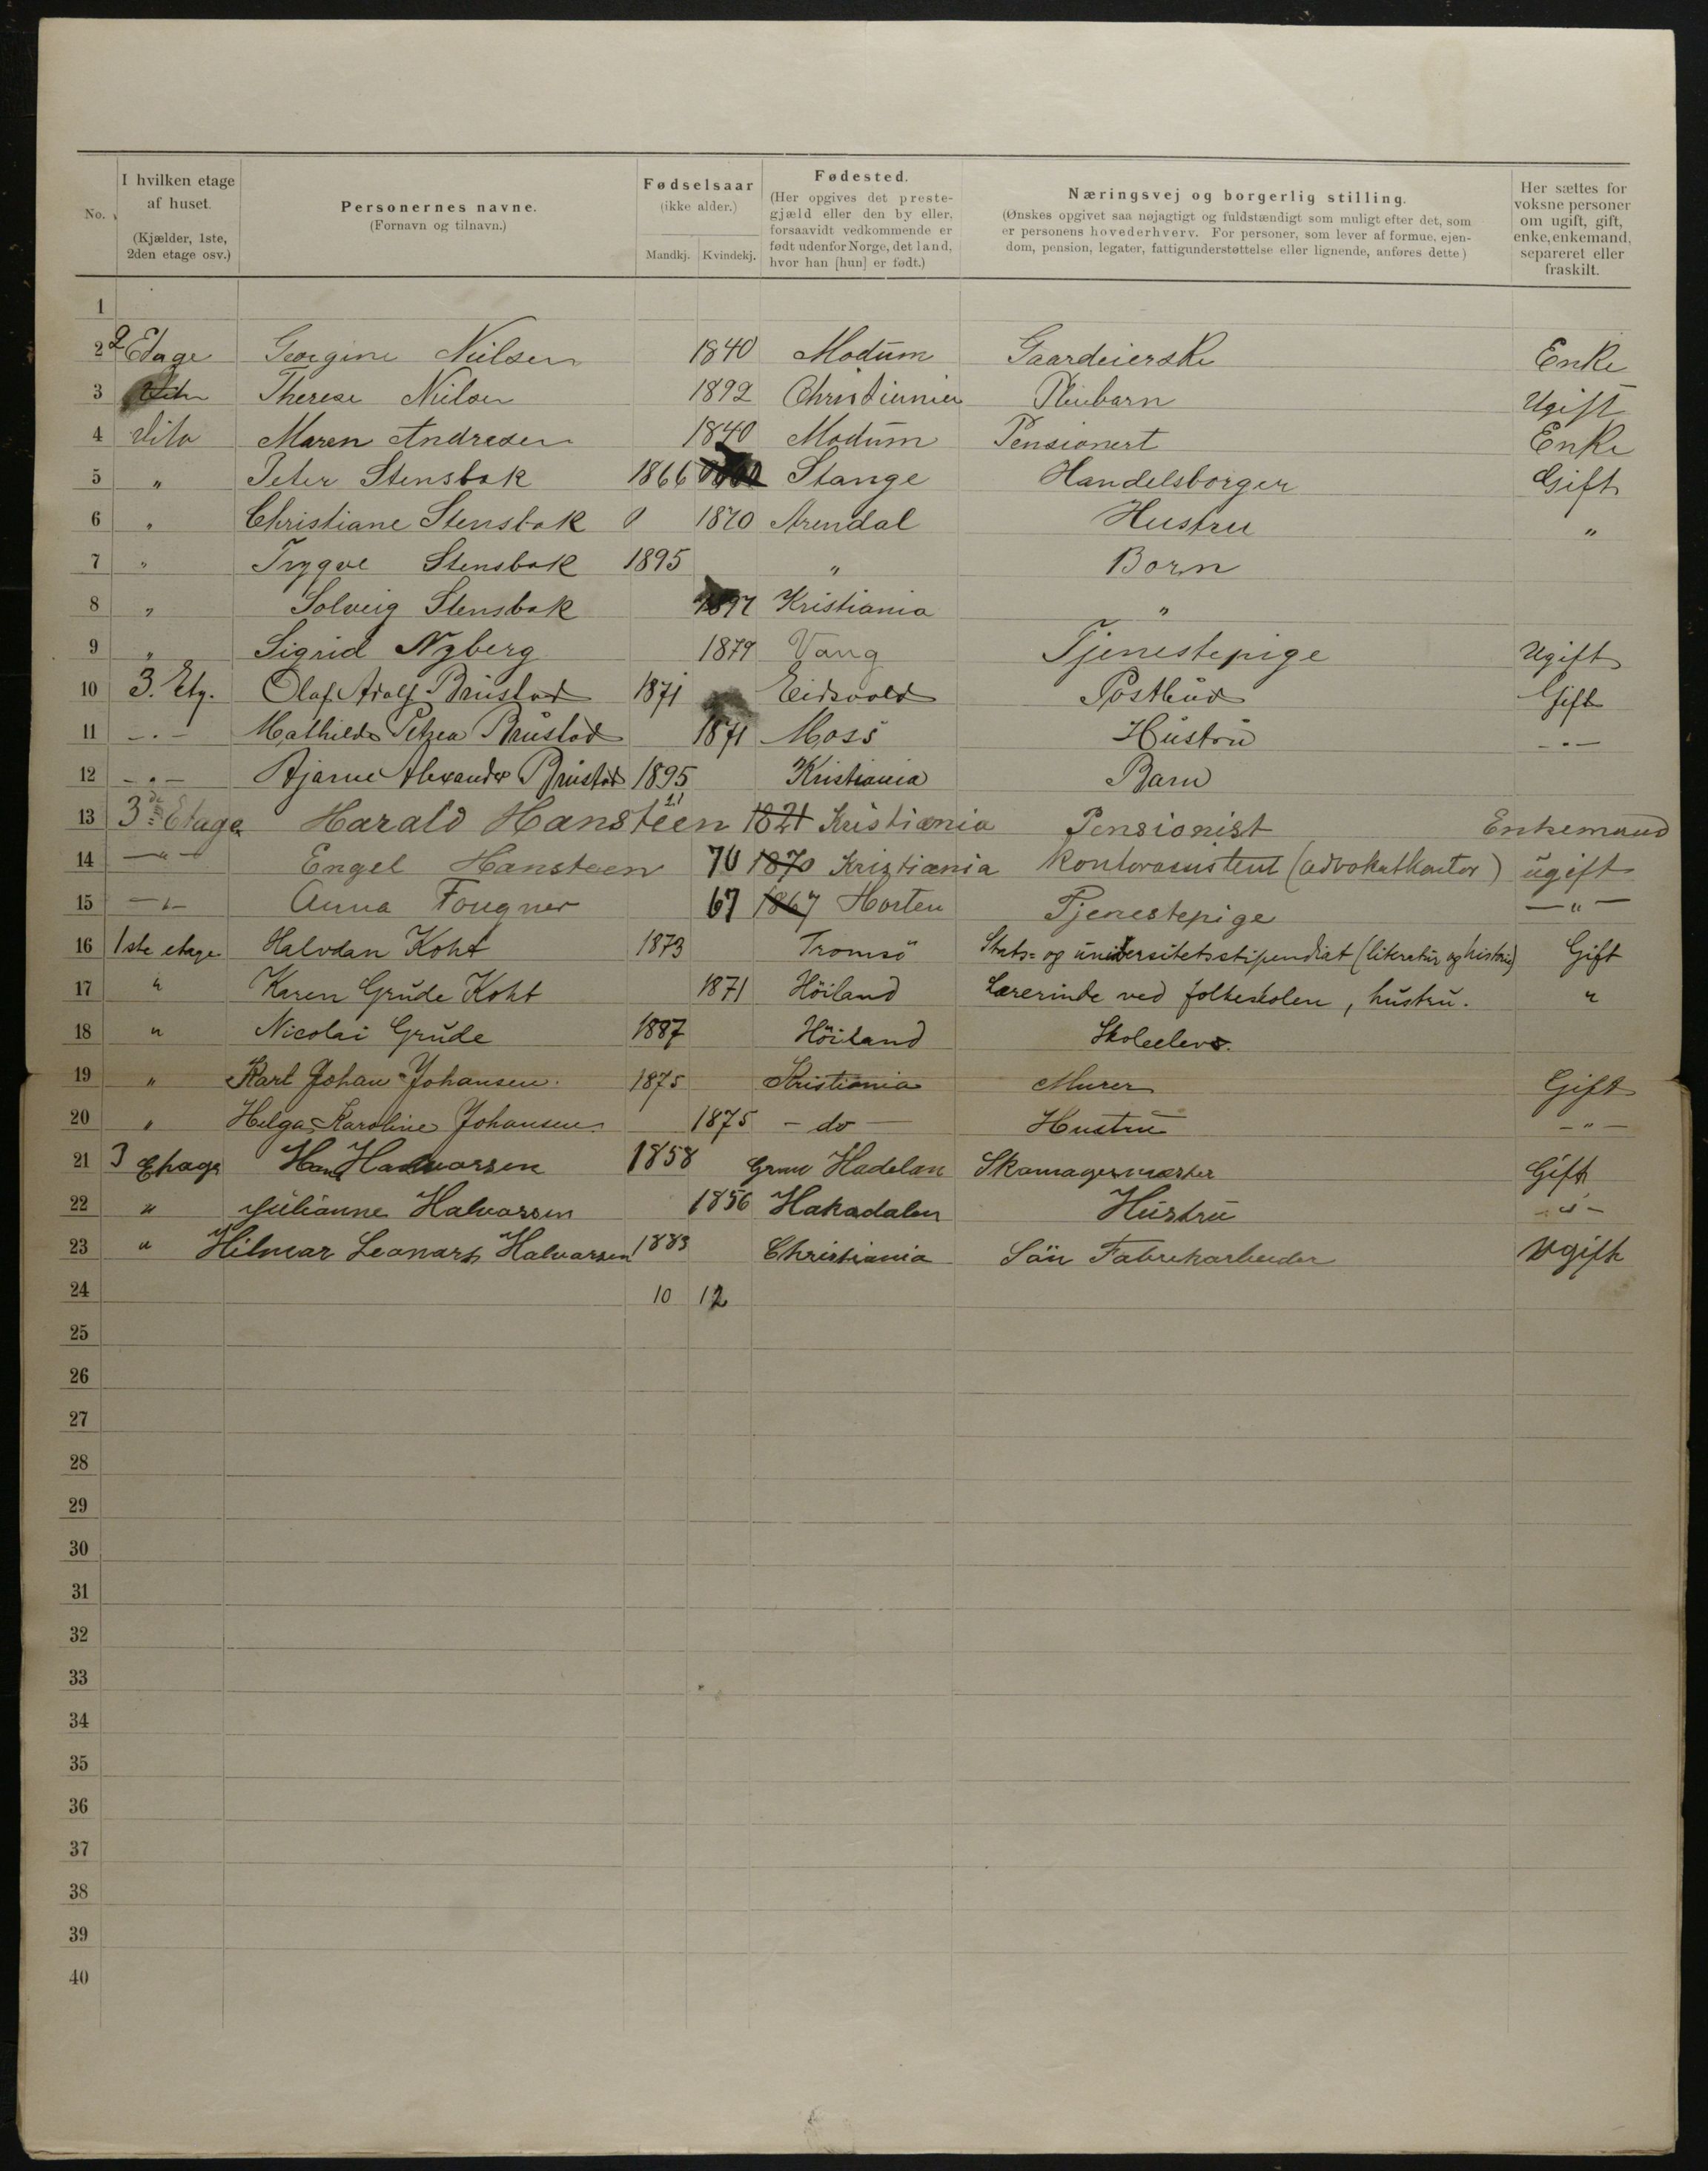 No.
I hvilken etage
af huset.
(Kjælder, 1ste,
2den etage osv.)
Personernes navne.
(Fornavn og tilnavn.)
Fødselsaar
(ikke alder.)
Mandkj. Kvindekj.
Fødested.
(Her opgives det preste-
gjæld eller den by eller,
forsaavidt vedkommende er
født udenfor Norge, det land,
hvor han [hun] er født.)
Næringsvej og borgerlig stilling.
(Ønskes opgivet saa nøjagtigt og fuldstændigt som muligt efter det, som
er personens hovederhverv. For personer, som lever af formue, ejen-
dom, pension, legater, fattigunderstøttelse eller lignende, anføres dette)
Her sættes for
voksne personer
om ugift, gift,
enke, enkemand,
separeret eller
fraskilt.
1
2 2 Etage Georgine Nielsen 1840 Modum Gaardeierske Enke
3 Therese Nielsen 1892 Christiania Pleiebarn Ugift
4 dito Maren Andresen 1840 Modum Pensionert Enke
5 " Peter Stensbak 1866 Stange Handelsborger Gift
6 " Christiane Stensbak 1870 Arendal Hustru "
7 " Trygve Stensbak 1895 " Born
8 " Solveig Stensbak 1897 Kristiania "
9 " Sigrid Nyberg 1879 Vang Tjenestepige Ugift
10 3. Etg. Olaf Adolf Brustad 1871 Eidsvold Postbud Gift
11 - " - Mathilde Petrea Brustad 1871 Moss Hustru - " -
12 - " - Bjarne Alexander Brustad 1895 Kristiania Barn
13 3de Etage Harald Hansteen 21 1821 Kristiania Pensionist Enkemand
14 - " - Engel Hansteen 70 1870 Kristiania Kontorassistent (advokatkontor) ugift
15 - " - Anna Fougner 67 1867 Horten Tjenestepige - " -
16 1ste etage Halvdan Koht 1873 Tromsö Stats- og universitetsstipendiat (literatur og historie) Gift
17 " Karen Grude Koht 1871 Höiland Lærerinde ved folkeskolen, hustru. "
18 " Nicolai Grude 1887 Höiland Skoleelev.
19 " Karl Johan Johansen. 1875 Kristiania Murer Gift
20 " Helga Karoline Johansen. 1875 - do - Hustru - " -
21 3 Etage Hans Halvorsen 1858 Gran Hadelan Skomagermester Gift
22 " Julianne Halvorsen 1856 Hakadalen Hustru - " -
23 " Hilmar Leonart Halvorsen 1883 Christiania Sön Fabrikarbeider Ugift
24 10 12
25
26
27
28
29
30
31
32
33
34
35
36
37
38
39
40